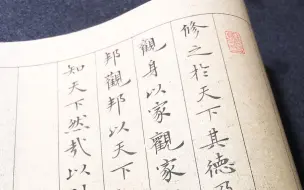 修之於天下其德乃
觀身以家觀家
邦觀邦以天下
知天下然哉以